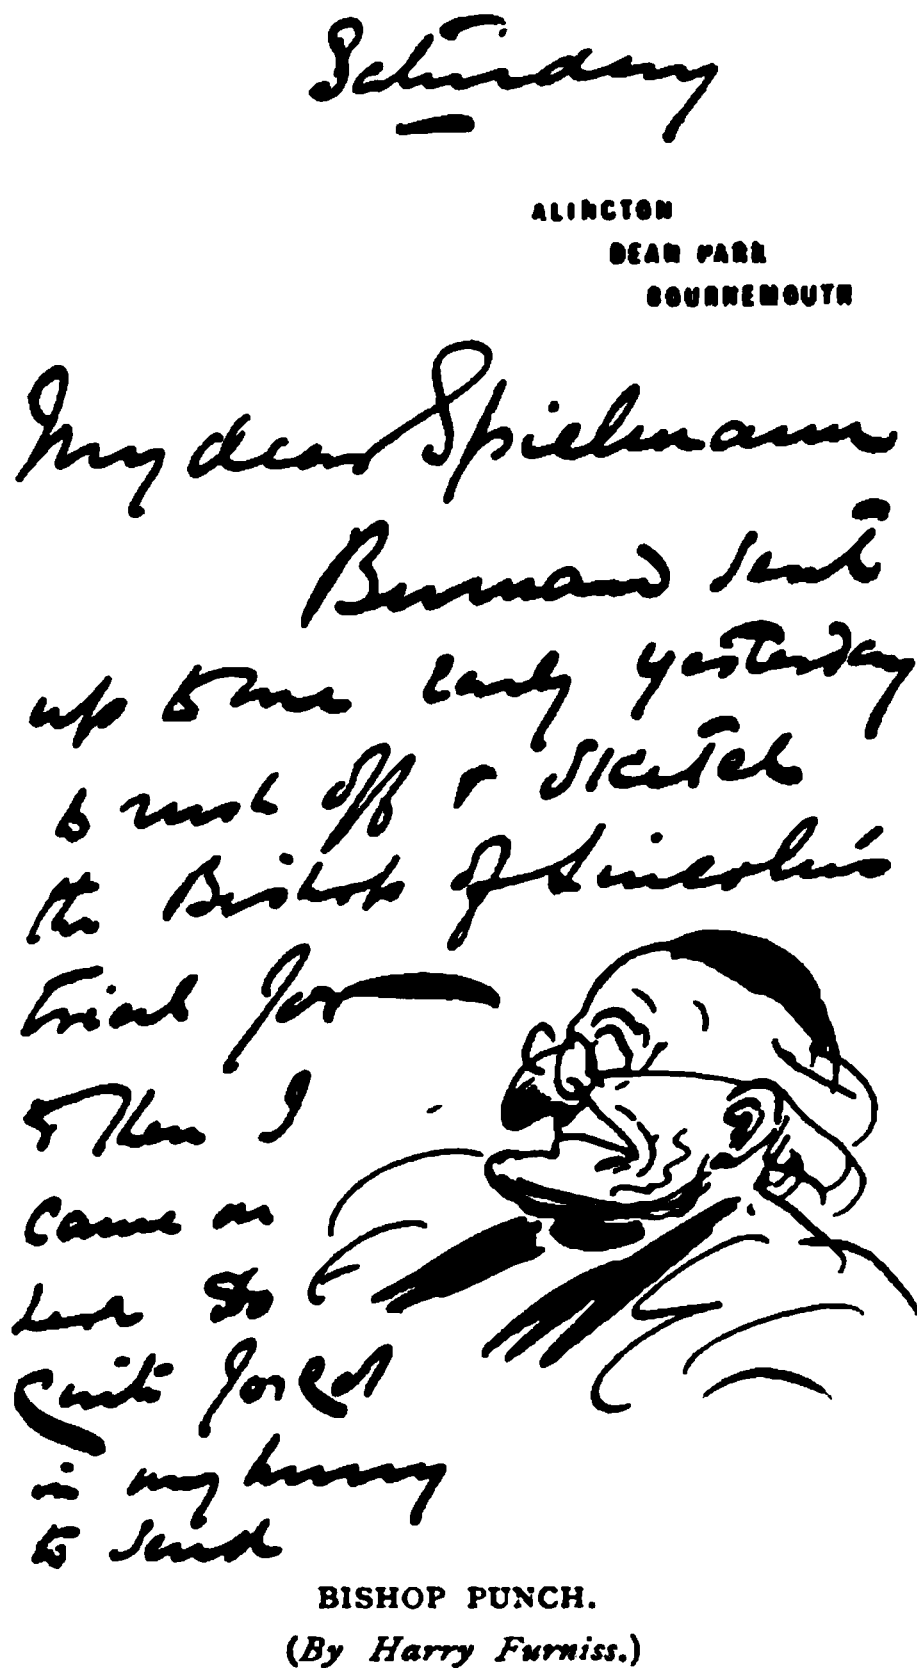 Saturday
ALINGTON
DEAN PARK
BOURNEMOUTH
My dear Spielmann
Burnand sent
up to me early yesterday
to rush off & sketch
the Bishop of Lincoln's
trial for
& then I
came on
here so
quite forgot
in my hurry
to send
BISHOP PUNCH.
(By Harry Furniss.)